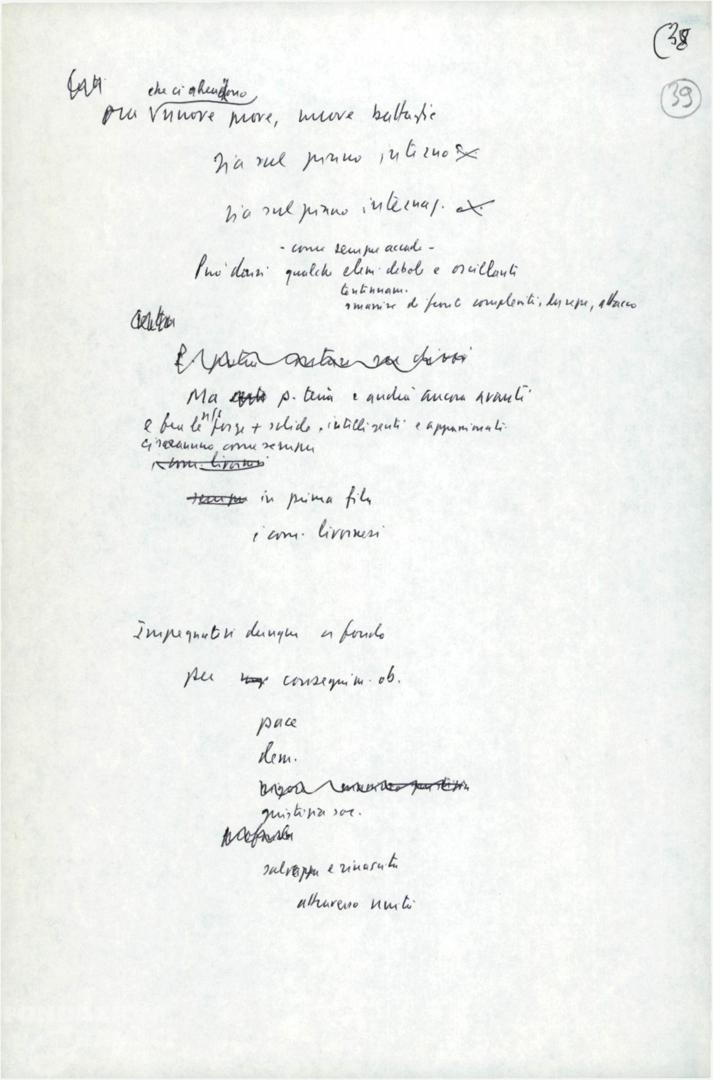 (38
39
che ci attendono
per nuove prove, nuove battaglie
sia sul piano interno
sia sul piano internaz.
- come sempre accade -
Può darsi qualche elem. debole e oscillante
tentennam.
di fronte complessità,
Ma p. terrà e andrà ancora avanti
e fra le forze + solide, intelligenti e appassionate
ci saranno come sempre
i com. livornesi
sempre in prima fila
i com. livornesi
Impegnatevi dunque a fondo
per conseguim. ob.
pace
dem.
giustizia soc.
salvezza e rinascita
attraverso unità